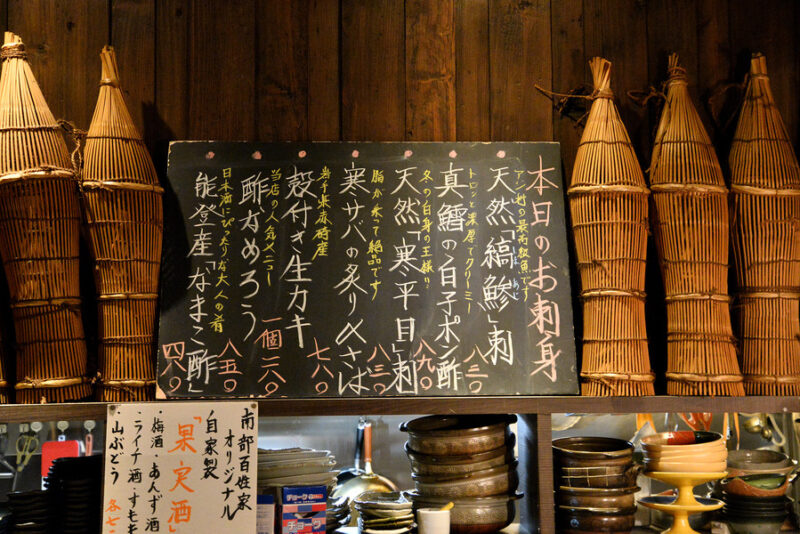 本日のお刺身
アジ科の最高級魚です
しまあじ
天然「縞鯵」刺 八三〇
トロッと濃厚でクリーミー
真鱈の白子ポン酢 八九〇
冬の白身の王様!!
天然「寒平目」刺 八三〇
脂が乗って絶品です
寒サバの炙り〆さば 七八〇
岩手県赤崎産
殻付き生カキ 一個二八〇
当店の人気メニュー
酢なめろう 八五〇
日本酒にぴったりな大人の肴
能登産「なまこ酢」 四八〇
南部百姓家
オリジナル
自家製
「果実酒」
・梅酒・あんず酒
・ライチ酒・すもも
・山ぶどう 各七
チョーク
チョーク